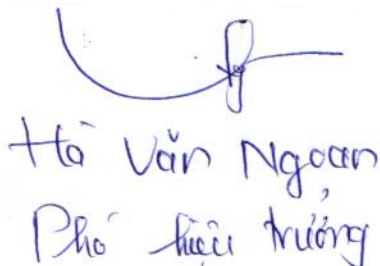 Hà Văn Ngoan
Phó hiệu trưởng